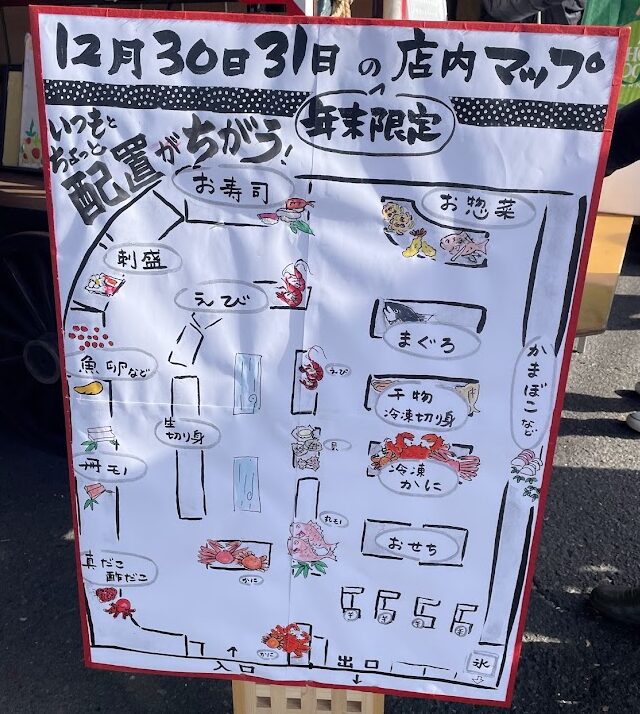 12月30日31日の店内マップ
年末限定
いつもと
ちょっと
配置がちがう!
お寿司
お惣菜
刺盛
えび
まぐろ
かまぼこ
など
魚卵など
えび
干物
冷凍切り身
生
切り身
貝
冊モノ
冷凍
かに
丸モノ
おせち
真だこ
酢だこ
かに
かに
入口
出口
氷